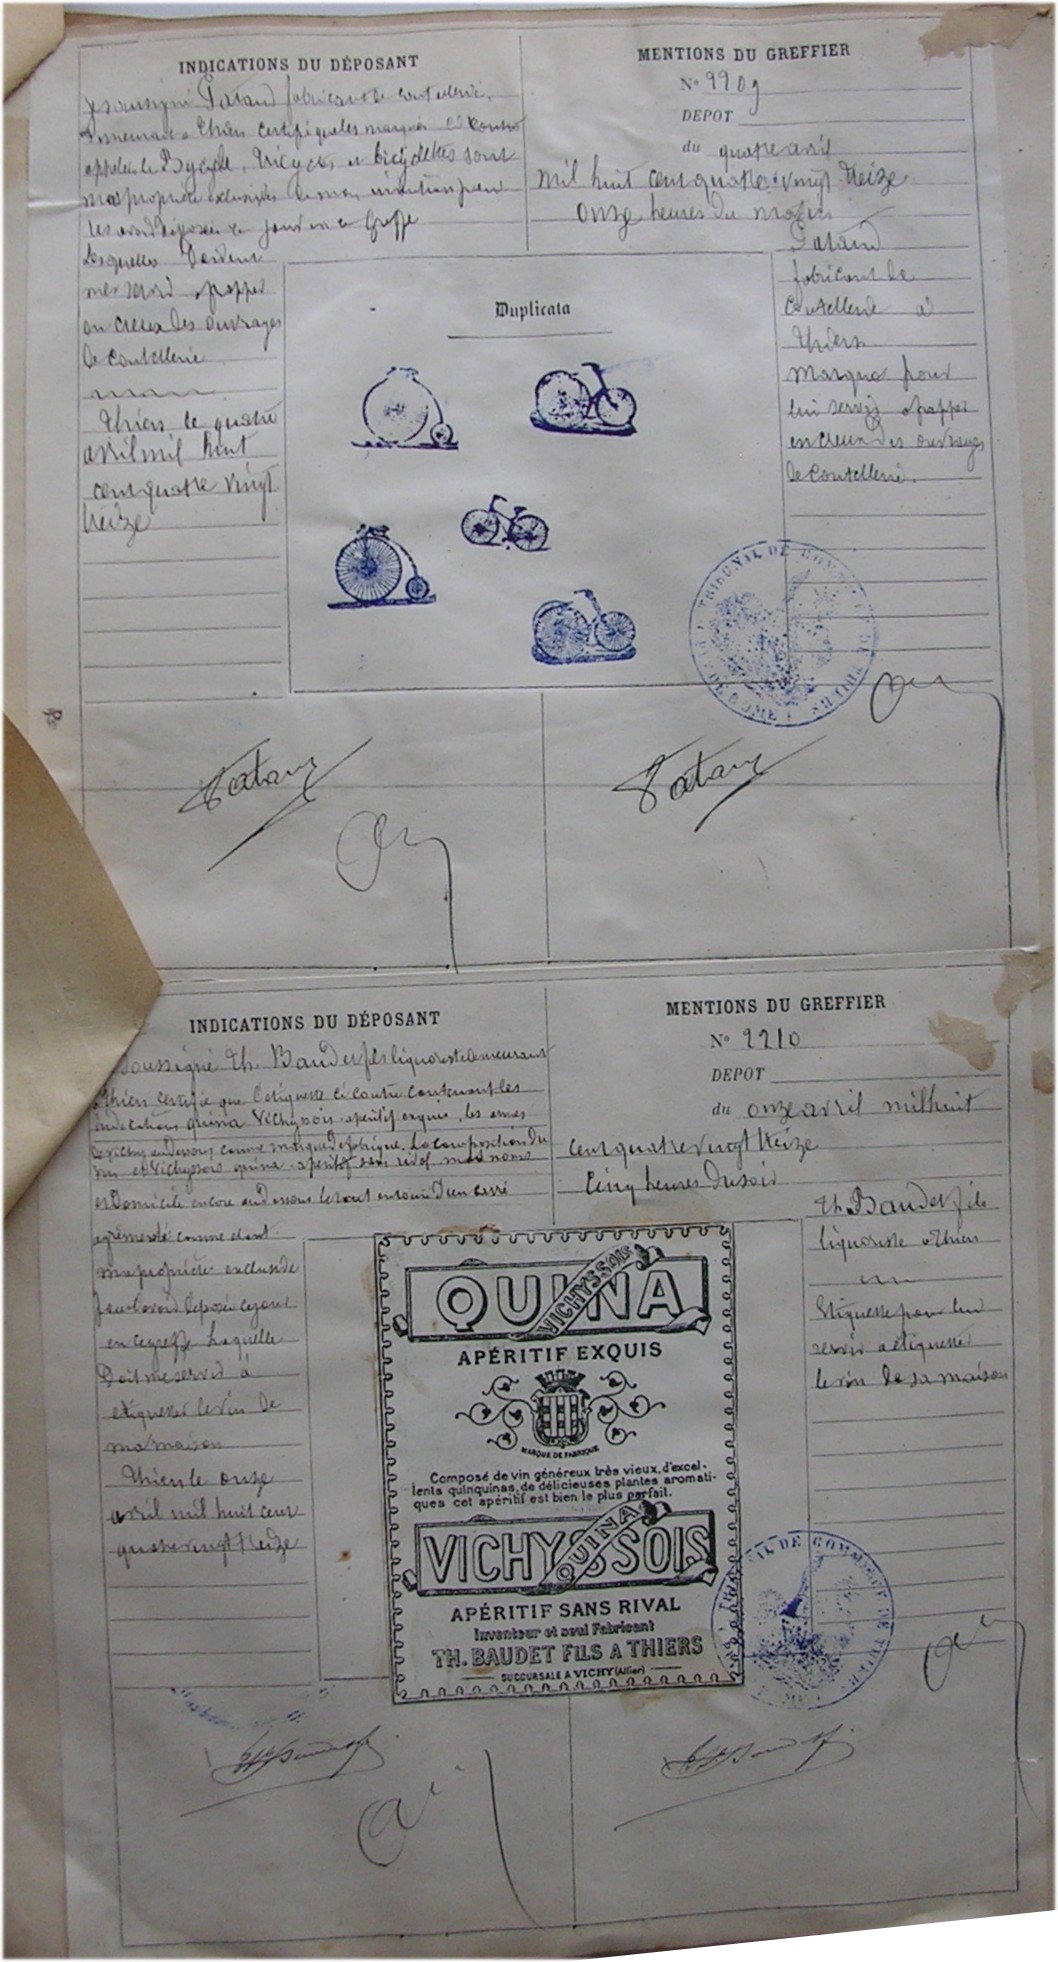 INDICATIONS DU DÉPOSANT
Je soussigné Pataud fabricant de coutellerie,
demeurant à Thiers certifie que les marques ci contre
appelées le Bycycle, Tricycle, et bicyclettes sont
ma propriété exclusive de mon invention pour
les avoir déposées ce jour en ce Greffe
Lesquelles doivent
me servir à frapper
en creux des ouvrages
de coutellerie
Thiers le quatre
avril mil huit
cent quatre vingt
treize
MENTIONS DU GREFFIER
N° 2209
DEPOT
du quatre avril
mil huit cent quatre-vingt treize
onze heures du matin
Pataud
fabricant de
coutellerie à
Thiers
Marques pour
lui servir à frapper
en creux des ouvrages
de coutellerie.
Duplicata
TRIBUNAL DE COMMERCE DE THIERS
PUY DE DOME
Pataud
Pataud
INDICATIONS DU DÉPOSANT
soussigné Th. Baudet fils liquoriste demeurant
à Thiers certifie que l'étiquette ci contre contenant les
indications quina Vichyssois apéritif exquis, les armes
de Vichy au dessous comme marque de fabrique. La composition du
vin et Vichyssois quina apéritif sans rival mes noms
et Domicile encore au dessous le tout entouré d'un carré
agrémenté comme étant
ma propriété exclusive
pour l'avoir déposée ce jour
en ce greffe Laquelle
Doit me servir à
étiqueter le vin de
ma maison
Thiers le onze
avril mil huit cent
quatre vingt treize
MENTIONS DU GREFFIER
N° 2210
DEPOT
du onze avril mil huit
cent quatre vingt treize
cinq heures du soir
Th. Baudet fils
liquoriste à Thiers
Etiquette pour lui
servir à étiqueter
le vin de sa maison
QUINA
VICHYSSOIS
APÉRITIF EXQUIS
MARQUE DE FABRIQUE
Composé de vin généreux très vieux, d'excel-
lents quinquinas, de délicieuses plantes aromati-
ques cet apéritif est bien le plus parfait.
VICHYSSOIS
QUINA
APÉRITIF SANS RIVAL
Inventeur et seul Fabricant
TH. BAUDET FILS A THIERS
SUCCURSALE A VICHY (Allier)
TRIBUNAL DE COMMERCE DE THIERS
Th Baudet fils
Th Baudet fils